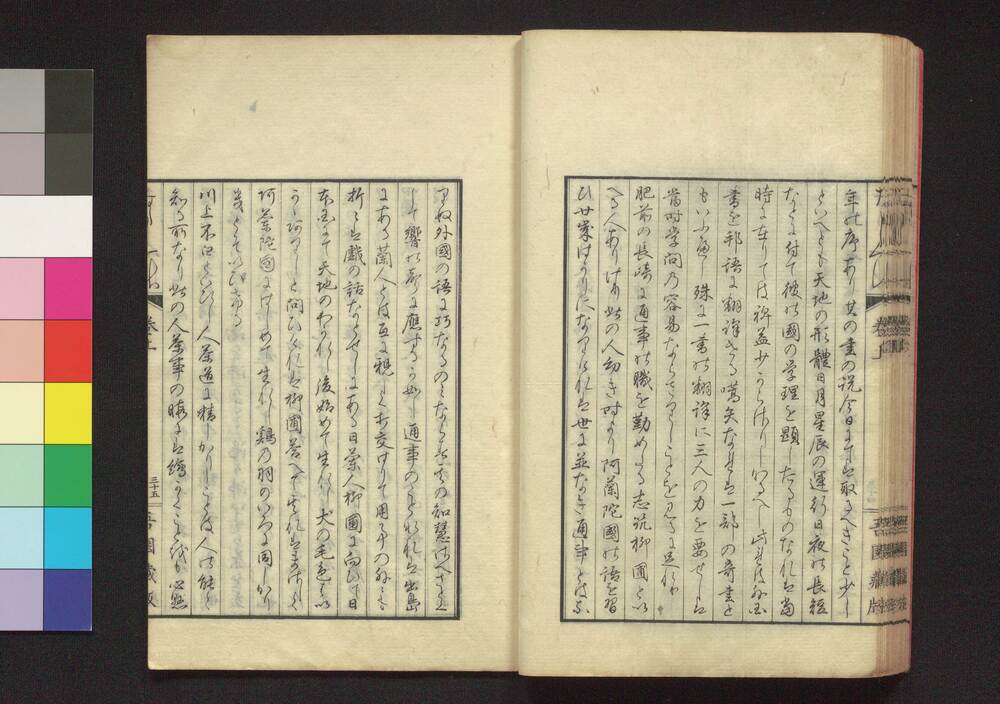 年の序あり其の書の説今日にてハ取るへきこと少し
といへとも天地の形體日月星辰の運行日夜の長短
なとに付て彼の國の学理を顕したるものなれハ當
時に在りてハ裨益少からさりしなるへし此ハ外国
書を邦語に翻譯せる嚆矢なれハ一部の奇書と
もいふへし殊に一書の翻譯に三人の力を要せしハ
當時学問の容易ならさりしことをミるに足れり
肥前の長崎に通事の職を勤めたる志筑柳圃とい
へる人ありけり此の人幼き時より阿蘭陀國の語を習
ひ廿歳はかりになりけれハ世に並なき通事とはな
りぬ外國の語に巧なるのミならす其の智慧
して響の声に應するか如し通事のことなれハ出島
にある蘭人とは互に親しく交はりて用事の外にも
折々は戯の話なとせしにある日蘭人柳圃に向ひて日
本国にて天地のわかれし後始めて生れし犬の毛色はい
かゝありしと問ひけれハ柳圃答へて其れは
阿蘭陀国にはしめて生れし鶏の羽のいろに同しかり
きとそいひける
川上不白といひし人茶道に精しかりしことは人の能く
知る所なり此の人茶事の暇には繪かくことを
三十五